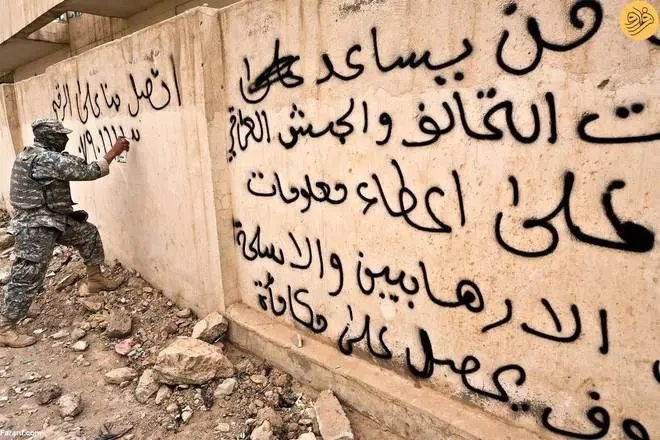 من يساعد
ت التحالف والجيش العراقي
على اعطاء معلومات
الارهابيين والاسلحة
وف يحصل على مكافأة
اتصل بنا على الرقم
فرارو
Fararu.com